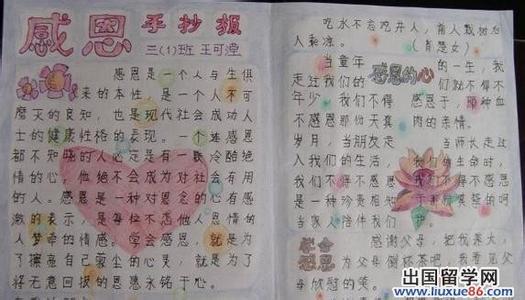 感恩手抄报
三(1)班 王可滢
感恩是一个人与生俱
来的本性,是一个人不可
磨灭的良知,也是现代社会成功人
士的健康性格的表现。一个连感恩
都不知晓的人必定是有一颗冷酷绝
情的心,他绝不会成为对社会有用
的人。感恩是一种对恩念的心有感
激的表示,是每位不忘他人恩情的
人梦牵的情感。学会感恩,就是为
了擦亮自己蒙尘的心灵,就是为了
将无意回报的恩惠永铭于心。
吃水不忘吃井人,前人栽树后
人乘凉。(肖楚女)
感恩的心
当童年的一生,我
走过我们的们就不得不
年少我们不得感恩于,那种血
不感恩那份天真肉的亲情。
岁月,当朋友走当师长走过
入我们的生活,我们的生命时,
我们不得不感恩我们不得不感恩
是一种珍贵相他于那份真挚的呵
当家人陪伴我们护
学会感恩
感谢父母,把我养大,
为父母倒杯茶吧,我看
母欣慰的笑。
出国留学网
www.liuxue86.com